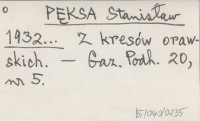 PĘKSA Stanisław
1932... Z kresów oraw-
skich. — Gaz. Podh. 20,
nr 5.
E/040/0235